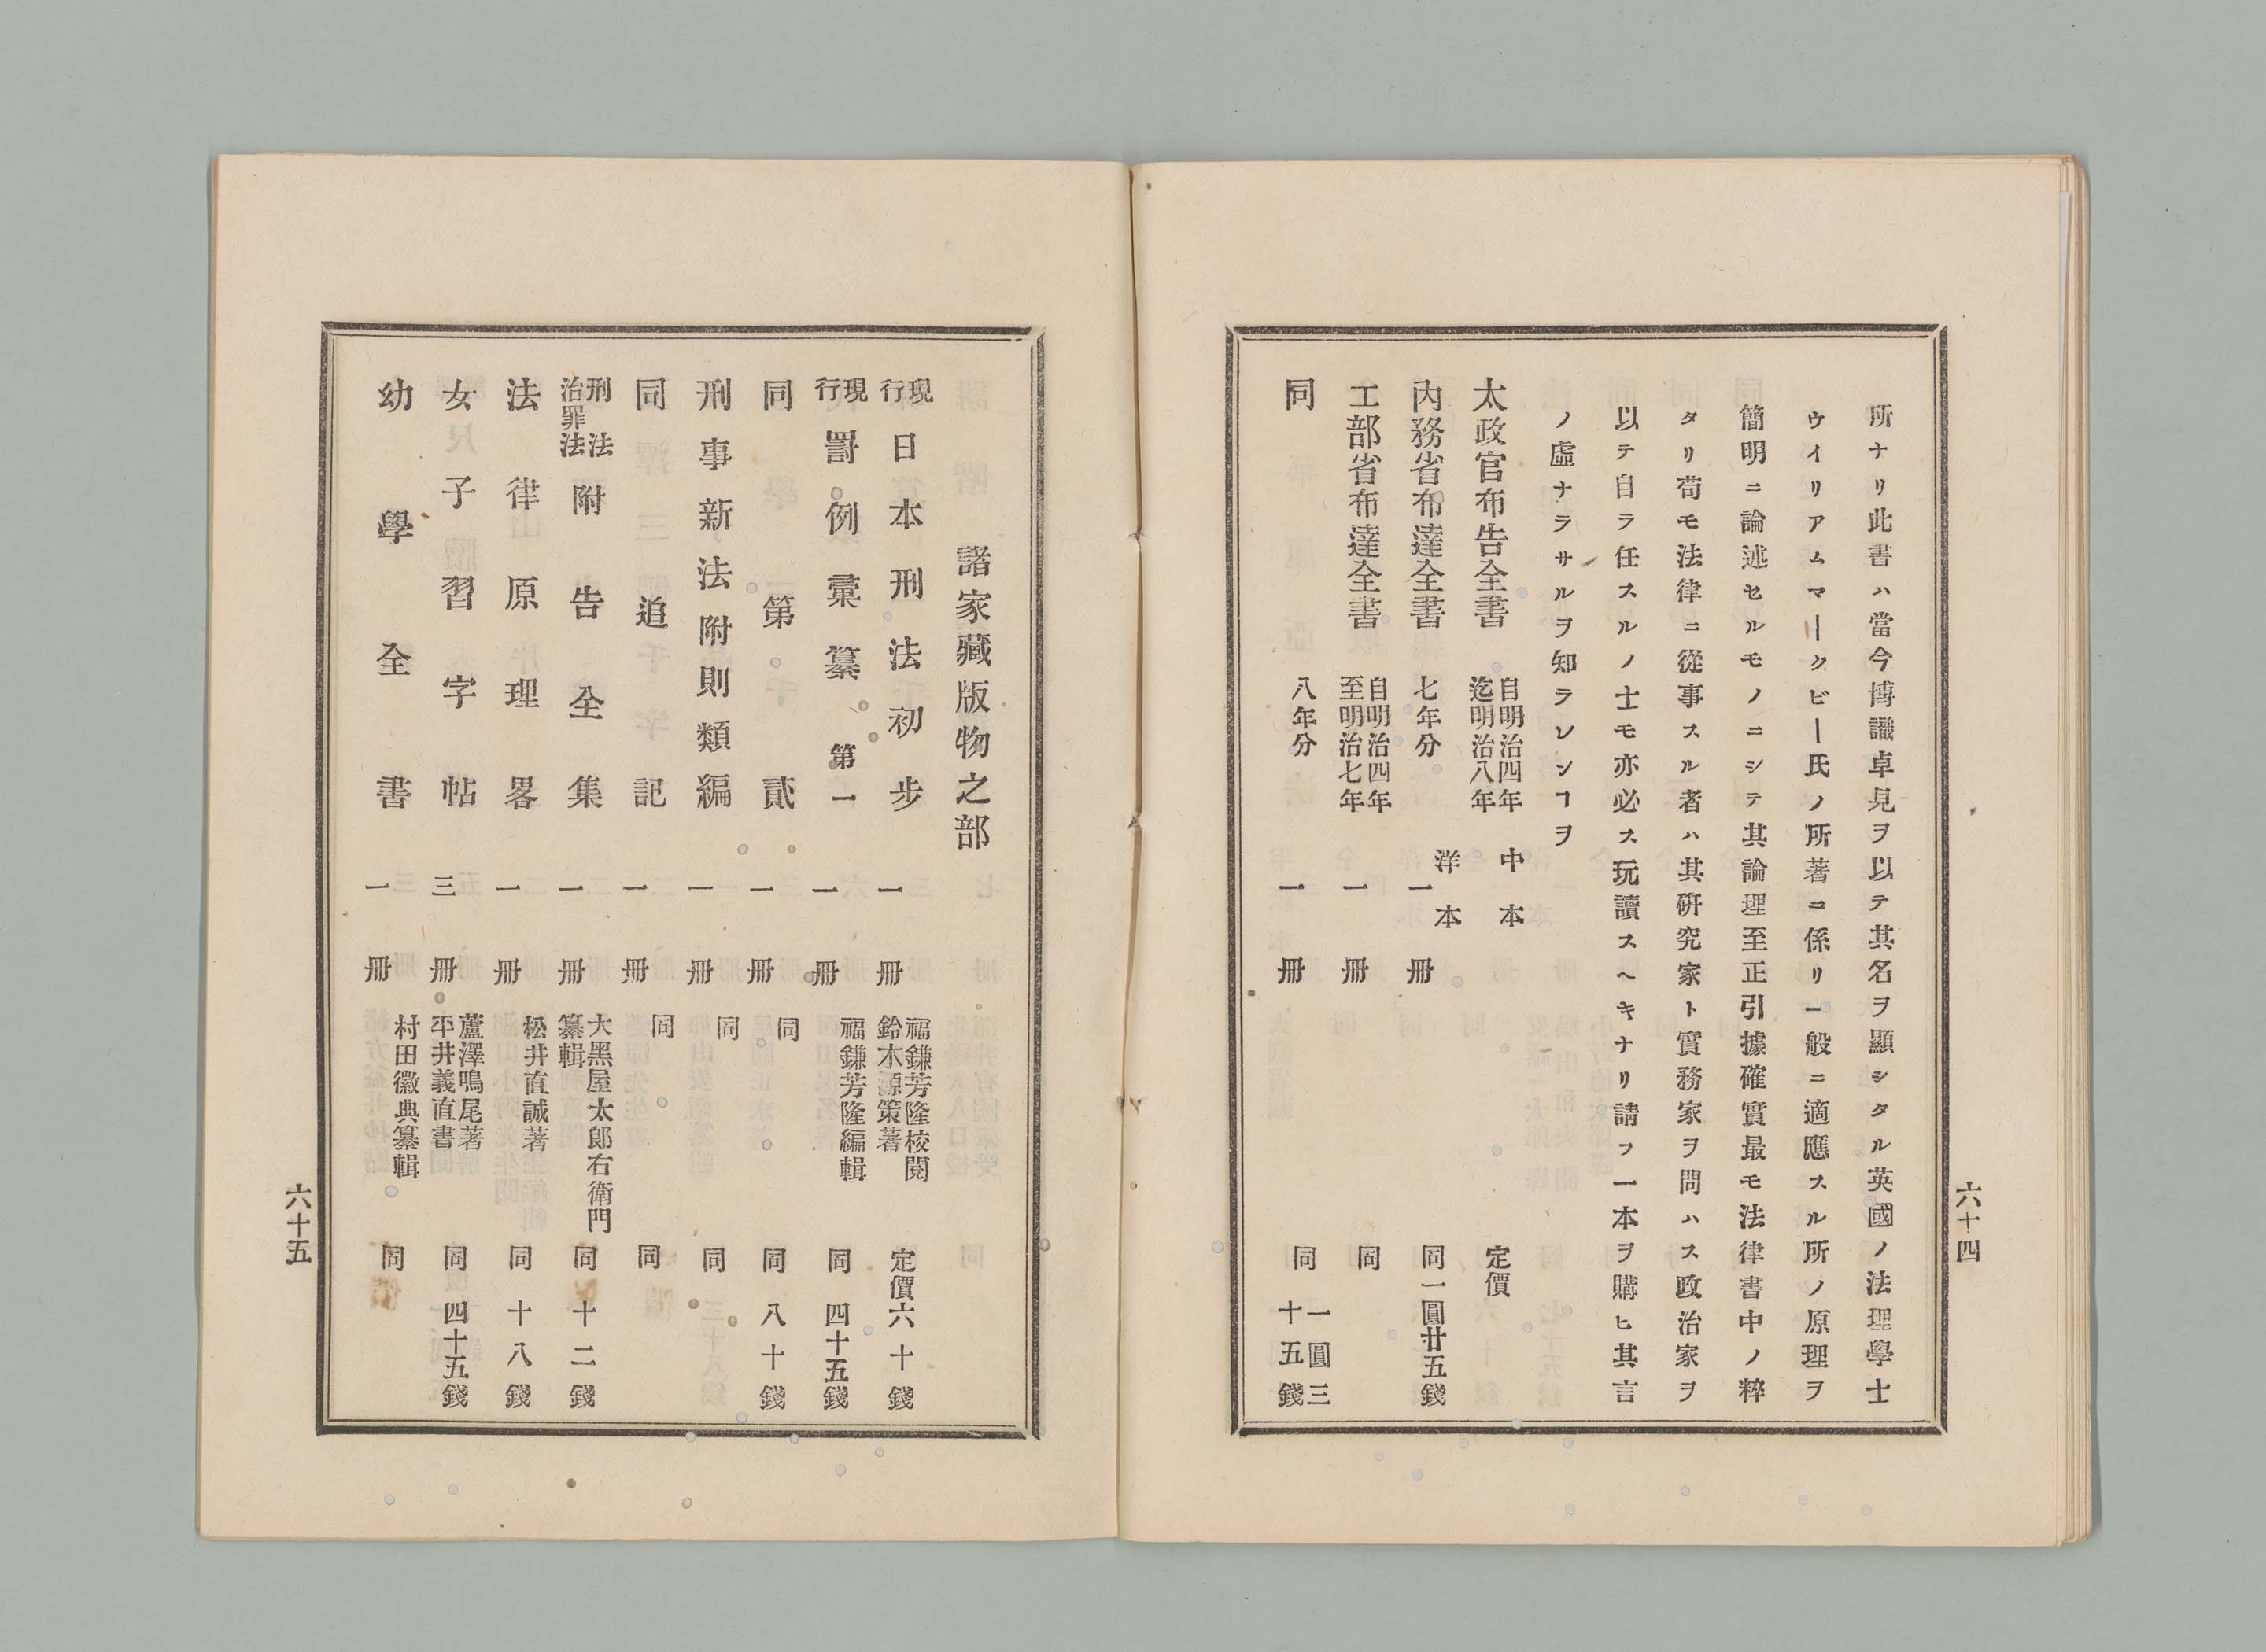 所ナリ此書ハ當今博識卓見ヲ以テ其名ヲ顯シタル英國ノ法理學士
ウイリアムマークビー氏ノ所著ニ係リ一般ニ適應スル所ノ原理ヲ
簡明ニ論述セルモノニシテ其論理至正引據確實最モ法律書中ノ粹
タリ苟モ法律ニ從事スル者ハ其研究家ト實務家ヲ問ハス政治家ヲ
以テ自ラ任スルノ士モ亦必ス玩讀スヘキナリ請フ一本ヲ購ヒ其言
ノ虛ナラサルヲ知ラレンヿヲ
太政官布告全書 自明治四年 迄明治八年 中本 定價
內務省布達全書 七年分 洋本 一冊 同一圓廿五錢
工部省布達全書 自明治四年 至明治七年 一冊 同
同 八年分 一冊 同 一圓三十五錢
六十四
諸家藏版物之部
現行日本刑法初步 一冊 福鎌芳隆校閱 鈴木源策著 定價六十錢
現行罰例彙纂 第一 一冊 福鎌芳隆編輯 同四十五錢
同 第貳 一冊 同 同八十錢
刑事新法附則類編 一冊 同 同
同追記 一冊 同 同
刑法治罪法附告全集 一冊 大黑屋太郎右衛門纂輯 同十二錢
法律原理畧 一冊 松井直誠著 同十八錢
女子習字帖 三冊 蘆澤鳴尾著 平井義直書 同四十五錢
幼學全書 一冊 村田徽典纂輯 同
六十五